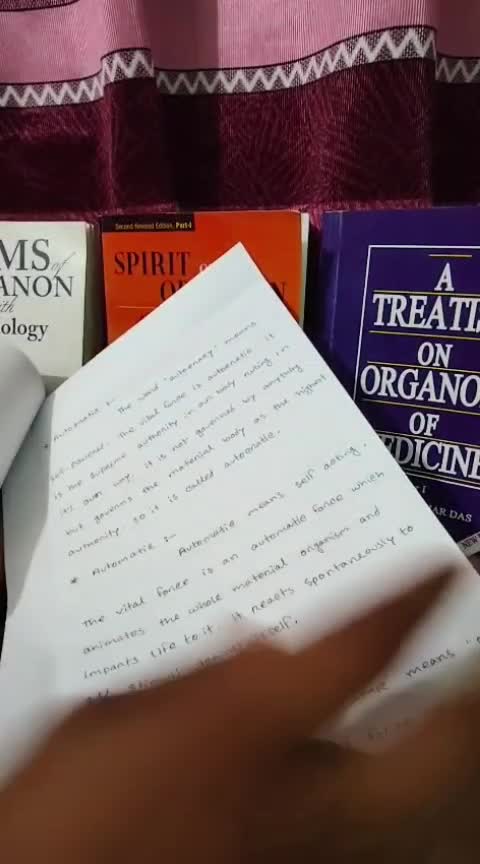 MS of
ANON
ith
ology
Second Revised Edition, Part-I
SPIRIT
A
TREATI
ON
ORGANO
OF
EDICINE
I
AR DAS
* Automatic :-
The word "autocracy" means
self-powered. The vital force is autocratic it
is the supreme authority in our body ruling in
it's own way. It is not governed by anything
but governs the material body as the highest
authority so it is called autocratic.
* Automatic :- Automatic means self acting.
The vital force is an automatic force which
animates the whole material organism and
imparts life to it. It reacts spontaneously to
self.
means